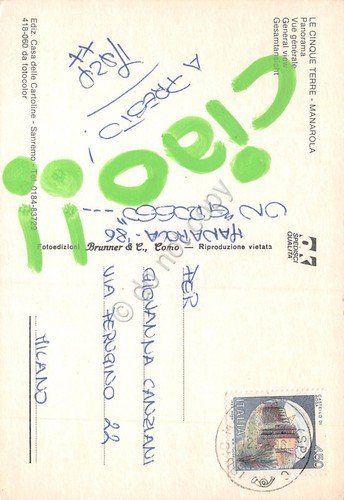 LE CINQUE TERRE - MANAROLA
Panorama
Vue générale
General view
Gesamtansicht
Ciao!!
UN
MANAROLA - '86
A
PRESTO!
Ediz. Casa delle Cartoline - Sanremo - Tel. 0184-83729
418-060 da fotocolor
Fotoedizioni Brunner & C., Como - Riproduzione vietata
SPEDISCI
QUALITÀ
PER
GIOVANNA CANZIANI
VIA PERUGINO 22
MILANO
ITALIA
450
do not copy